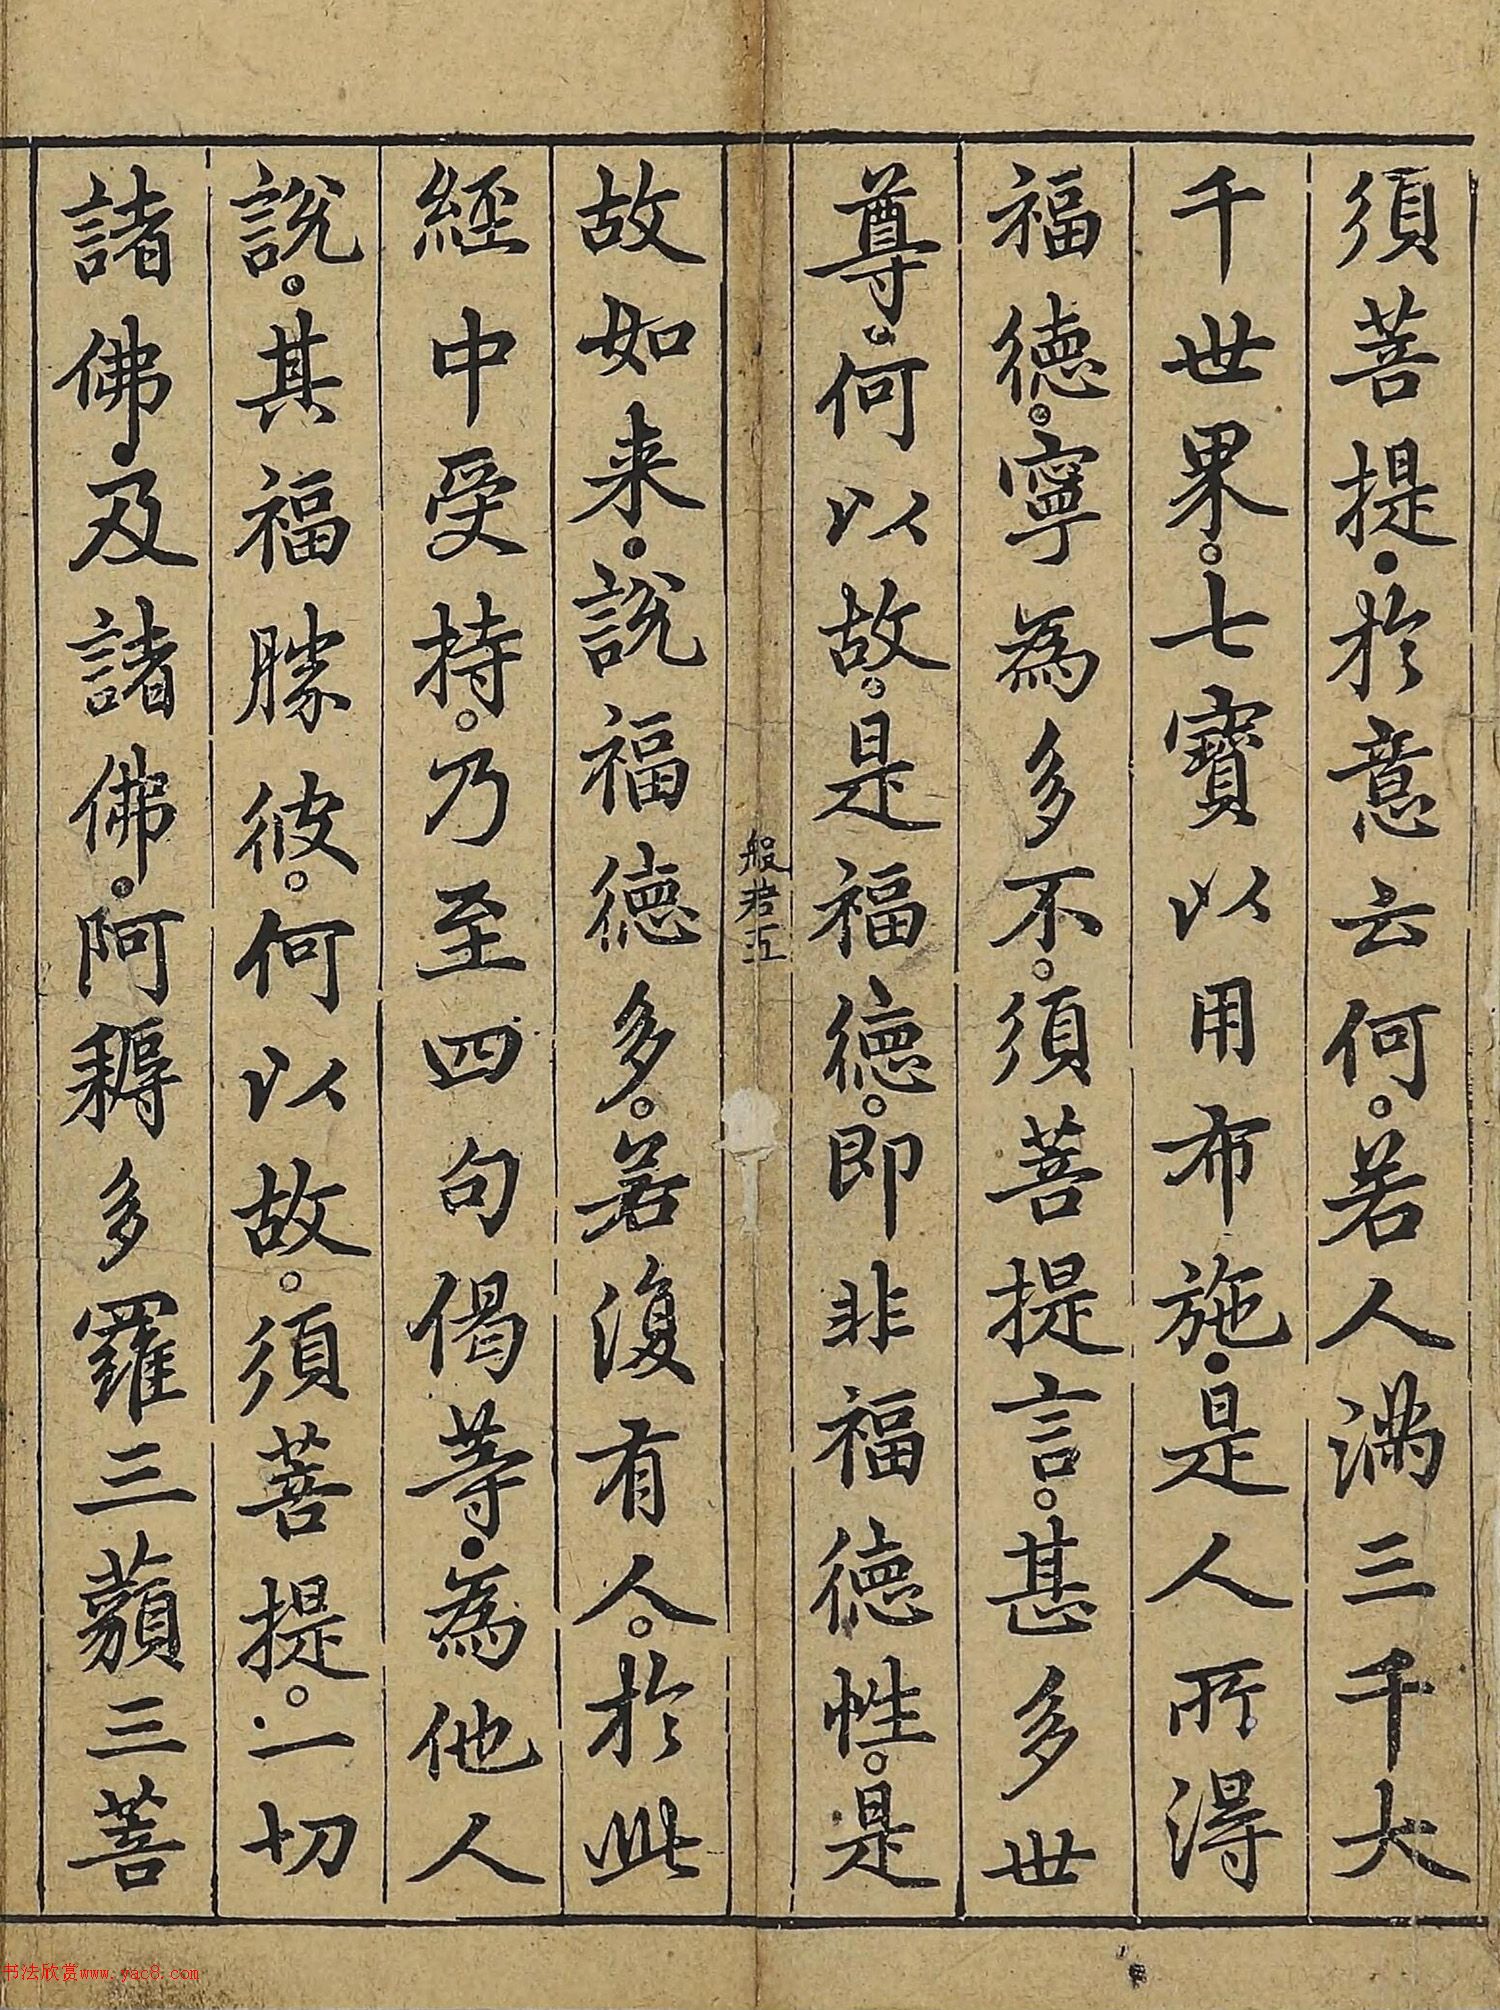 須菩提於意云何若人滿三千大
千世界七寶以用布施是人所得
福德寧為多不須菩提言甚多世
尊何以故是福德即非福德性是
般若五
故如来說福德多若復有人於此
經中受持乃至四句偈等為他人
說其福勝彼何以故須菩提一切
諸佛及諸佛阿耨多羅三藐三菩
书法欣赏www.yac8.com